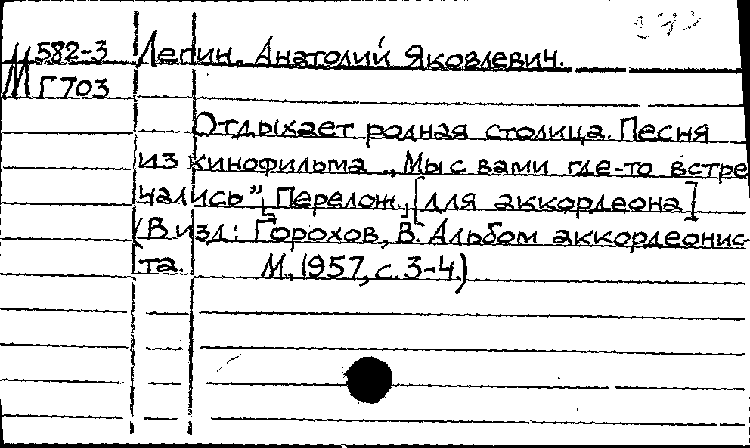 М 582-3 Лепин, Анатолий Яковлевич.
Г 703
Отдыхает родная столица. Песня
из кинофильма „Мы с вами где-то встре
чались". [Перелож.] [для аккордеона]
(В изд: Горохов, В. Альбом аккордеонис-
та. М., 1957, с. 3-4.)